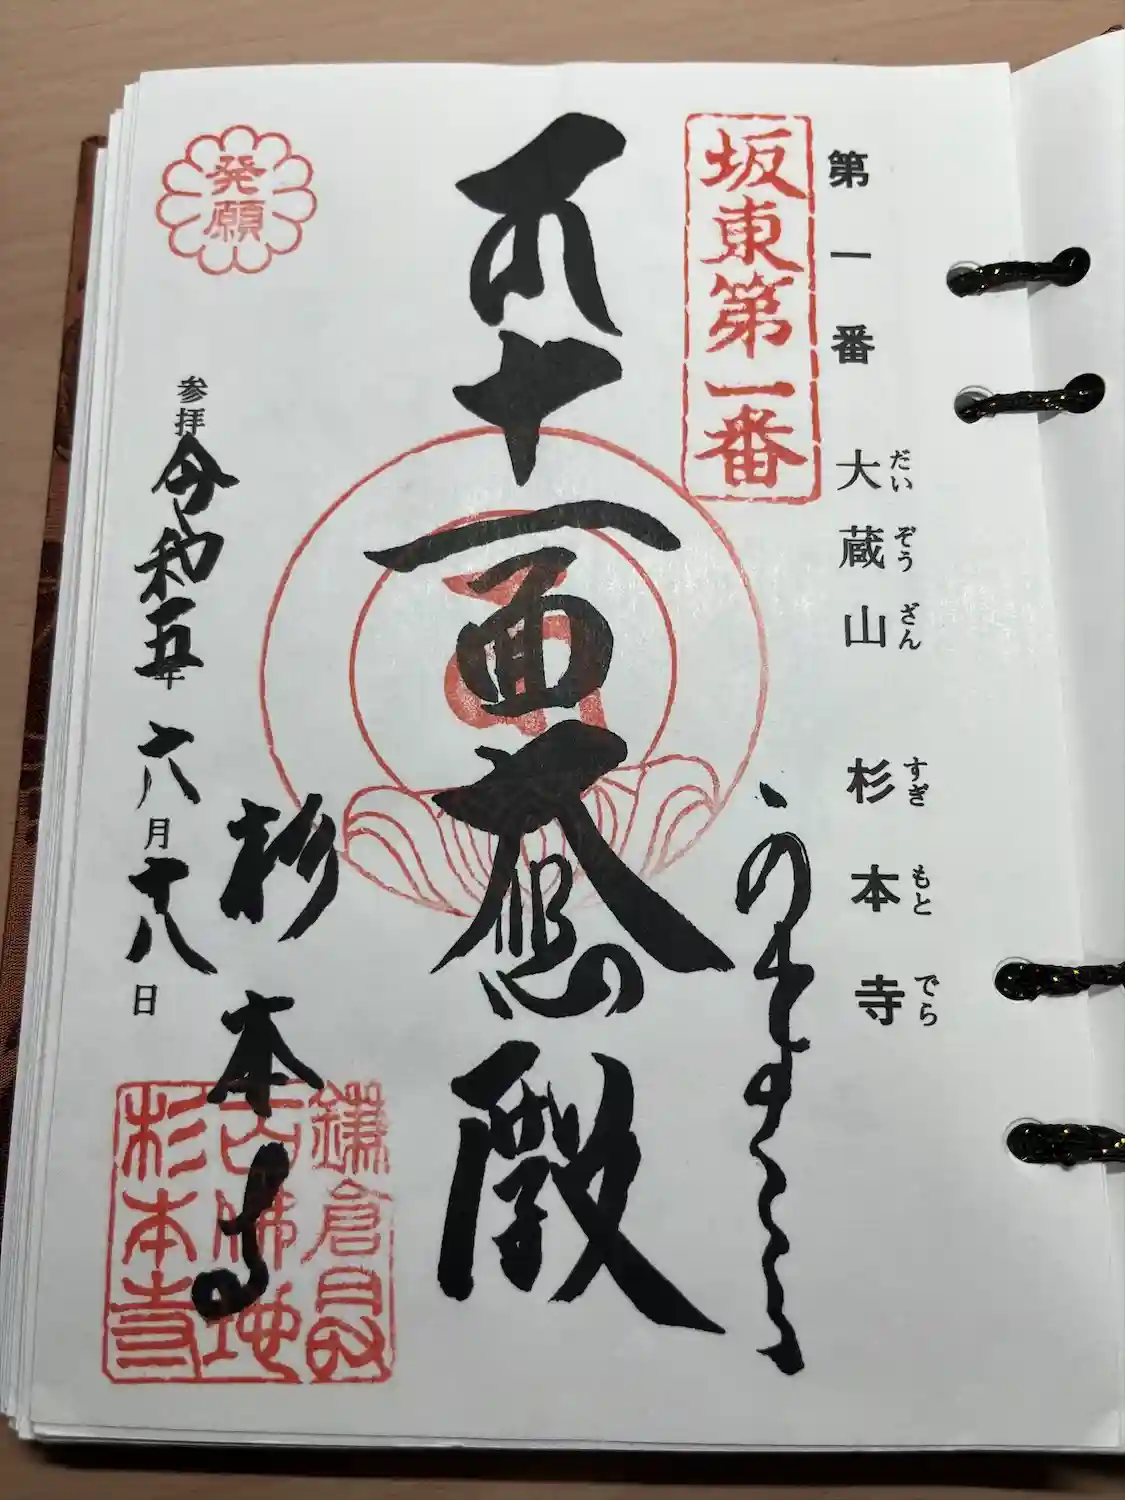 第一番 大蔵山 杉本寺
だいぞうざん すぎもとでら
坂東第一番
十一面大悲殿
杉本寺
発願
参拝 令和五年 六月十八日
鎌倉
杉本寺